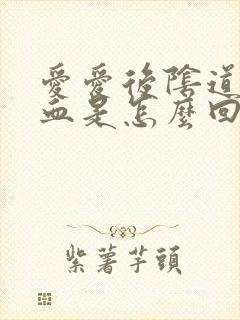 愛愛後陰道
血是怎麼回
紫薯芋頭